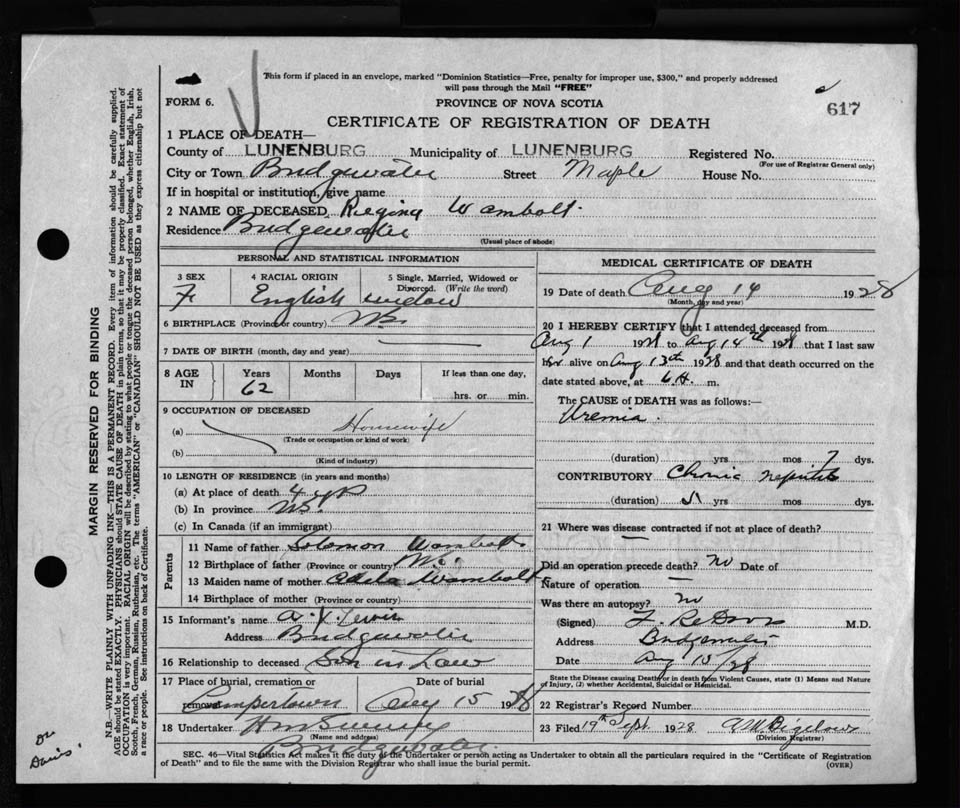 This form if placed in an envelope, marked "Dominion Statistics—Free, penalty for improper use, $300," and properly addressed
will pass through the Mail "FREE"
FORM 6.
PROVINCE OF NOVA SCOTIA
617
CERTIFICATE OF REGISTRATION OF DEATH
1 PLACE OF DEATH—
County of LUNENBURG Municipality of LUNENBURG Registered No.
(For use of Registrar General only)
City or Town Bridgewater Street Maple House No.
If in hospital or institution, give name
2 NAME OF DECEASED Regina Wambolt
Residence Bridgewater
(Usual place of abode)
PERSONAL AND STATISTICAL INFORMATION
3 SEX 4 RACIAL ORIGIN 5 Single, Married, Widowed or Divorced. (Write the word)
F English widow
6 BIRTHPLACE (Province or country) N.S.
7 DATE OF BIRTH (month, day and year)
8 AGE IN Years Months Days If less than one day,
62 hrs. or min.
9 OCCUPATION OF DECEASED
(a) Housewife
(Trade or occupation or kind of work)
(b)
(Kind of industry)
10 LENGTH OF RESIDENCE (in years and months)
(a) At place of death 4
(b) In province N.S.
(c) In Canada (if an immigrant)
Parents
11 Name of father Solomon Wambolt
12 Birthplace of father (Province or country) N.S.
13 Maiden name of mother Wambolt
14 Birthplace of mother (Province or country)
15 Informant's name A.
Address Bridgewater
16 Relationship to deceased Son in Law
17 Place of burial, cremation or removal Date of burial
Camperdown Aug 15 1928
18 Undertaker
(Name and address)
Bridgewater
MEDICAL CERTIFICATE OF DEATH
19 Date of death Aug 14 1928
(Month, day and year)
20 I HEREBY CERTIFY that I attended deceased from
Aug 1 1928 to Aug 14th 1928 that I last saw
her alive on Aug 13th 1928 and that death occurred on the
date stated above, at 6 A. m.
The CAUSE of DEATH was as follows:—
Uremia
(duration) yrs mos 7 dys.
CONTRIBUTORY Chronic Nephritis
(duration) yrs mos dys.
21 Where was disease contracted if not at place of death?
Did an operation precede death? no Date of
Nature of operation
Was there an autopsy? no
(Signed) M.D.
Address Bridgewater
Date Aug 15/28
State the Disease causing Death or in death from Violent Causes, state (1) Means and Nature
of Injury, (2) whether Accidental, Suicidal or Homicidal.
22 Registrar's Record Number
23 Filed 19th Sept. 1928
(Division Registrar)
SEC. 46—Vital Statistics Act makes it the duty of the Undertaker or person acting as Undertaker to obtain all the particulars required in the "Certificate of Registration
of Death" and to file the same with the Division Registrar who shall issue the burial permit.
(OVER)
MARGIN RESERVED FOR BINDING
N.B.—WRITE PLAINLY WITH UNFADING INK—THIS IS A PERMANENT RECORD. Every item of information should be carefully supplied.
AGE should be stated EXACTLY. PHYSICIANS should STATE CAUSE OF DEATH in plain terms, so that it may be properly classified. Exact statement of
OCCUPATION is very important. RACIAL ORIGIN will be described by stating to what people or tongue the deceased person belonged, whether English, Irish,
Scotch, French, German, Russian, Ruthenian, etc. The terms "AMERICAN" or "CANADIAN" SHOULD NOT BE USED as they express citizenship but not
a race or people. See instructions on back of Certificate.
Dr
Davis'